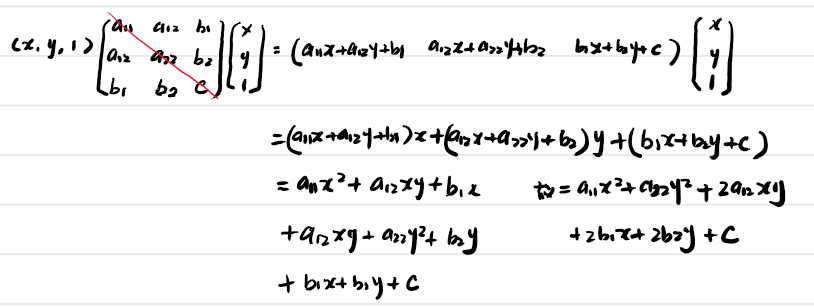 (x, y, 1) [a₁₁ a₁₂ b₁; a₁₂ a₂₂ b₂; b₁ b₂ c] [x; y; 1] = (a₁₁x+a₁₂y+b₁ a₁₂x+a₂₂y+b₂ b₁x+b₂y+c) (x; y; 1)
=(a₁₁x+a₁₂y+b₁)x+(a₁₂x+a₂₂y+b₂)y+(b₁x+b₂y+c)
= a₁₁x²+a₁₂xy+b₁x = a₁₁x²+a₂₂y²+2a₁₂xy
+a₁₂xy+a₂₂y²+b₂y +2b₁x+2b₂y+c
+ b₁x+b₂y+c